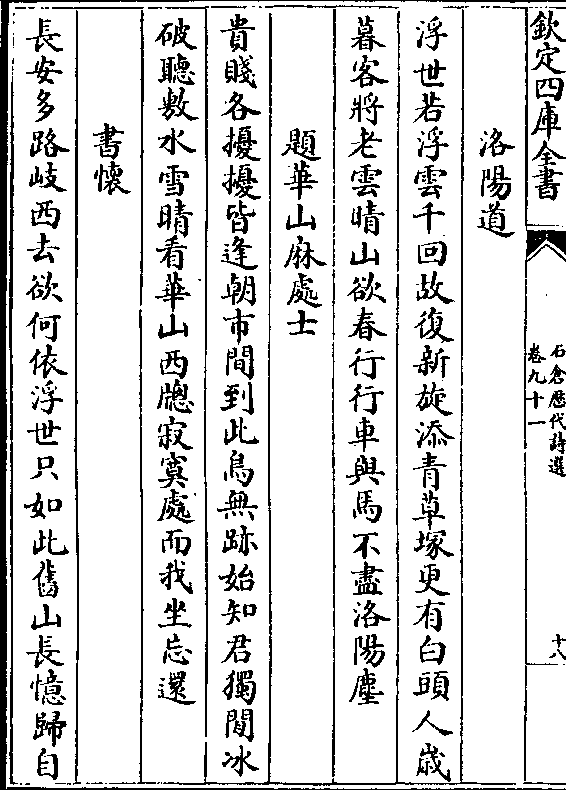 欽定四庫全書
石倉歷代詩選
卷九十一
十八
洛陽道
浮世若浮雲千回故復新旋添青草塚更有白頭人歳
暮客將老雲晴山欲春行行車與馬不盡洛陽塵
題華山麻處士
貴賤各擾擾皆逢朝市間到此鳥無跡始知君獨閒冰
破聽敷水雪晴看華山西牕寂寞處而我坐忘還
書懷
長安多路岐西去欲何依浮世只如此舊山長憶歸自